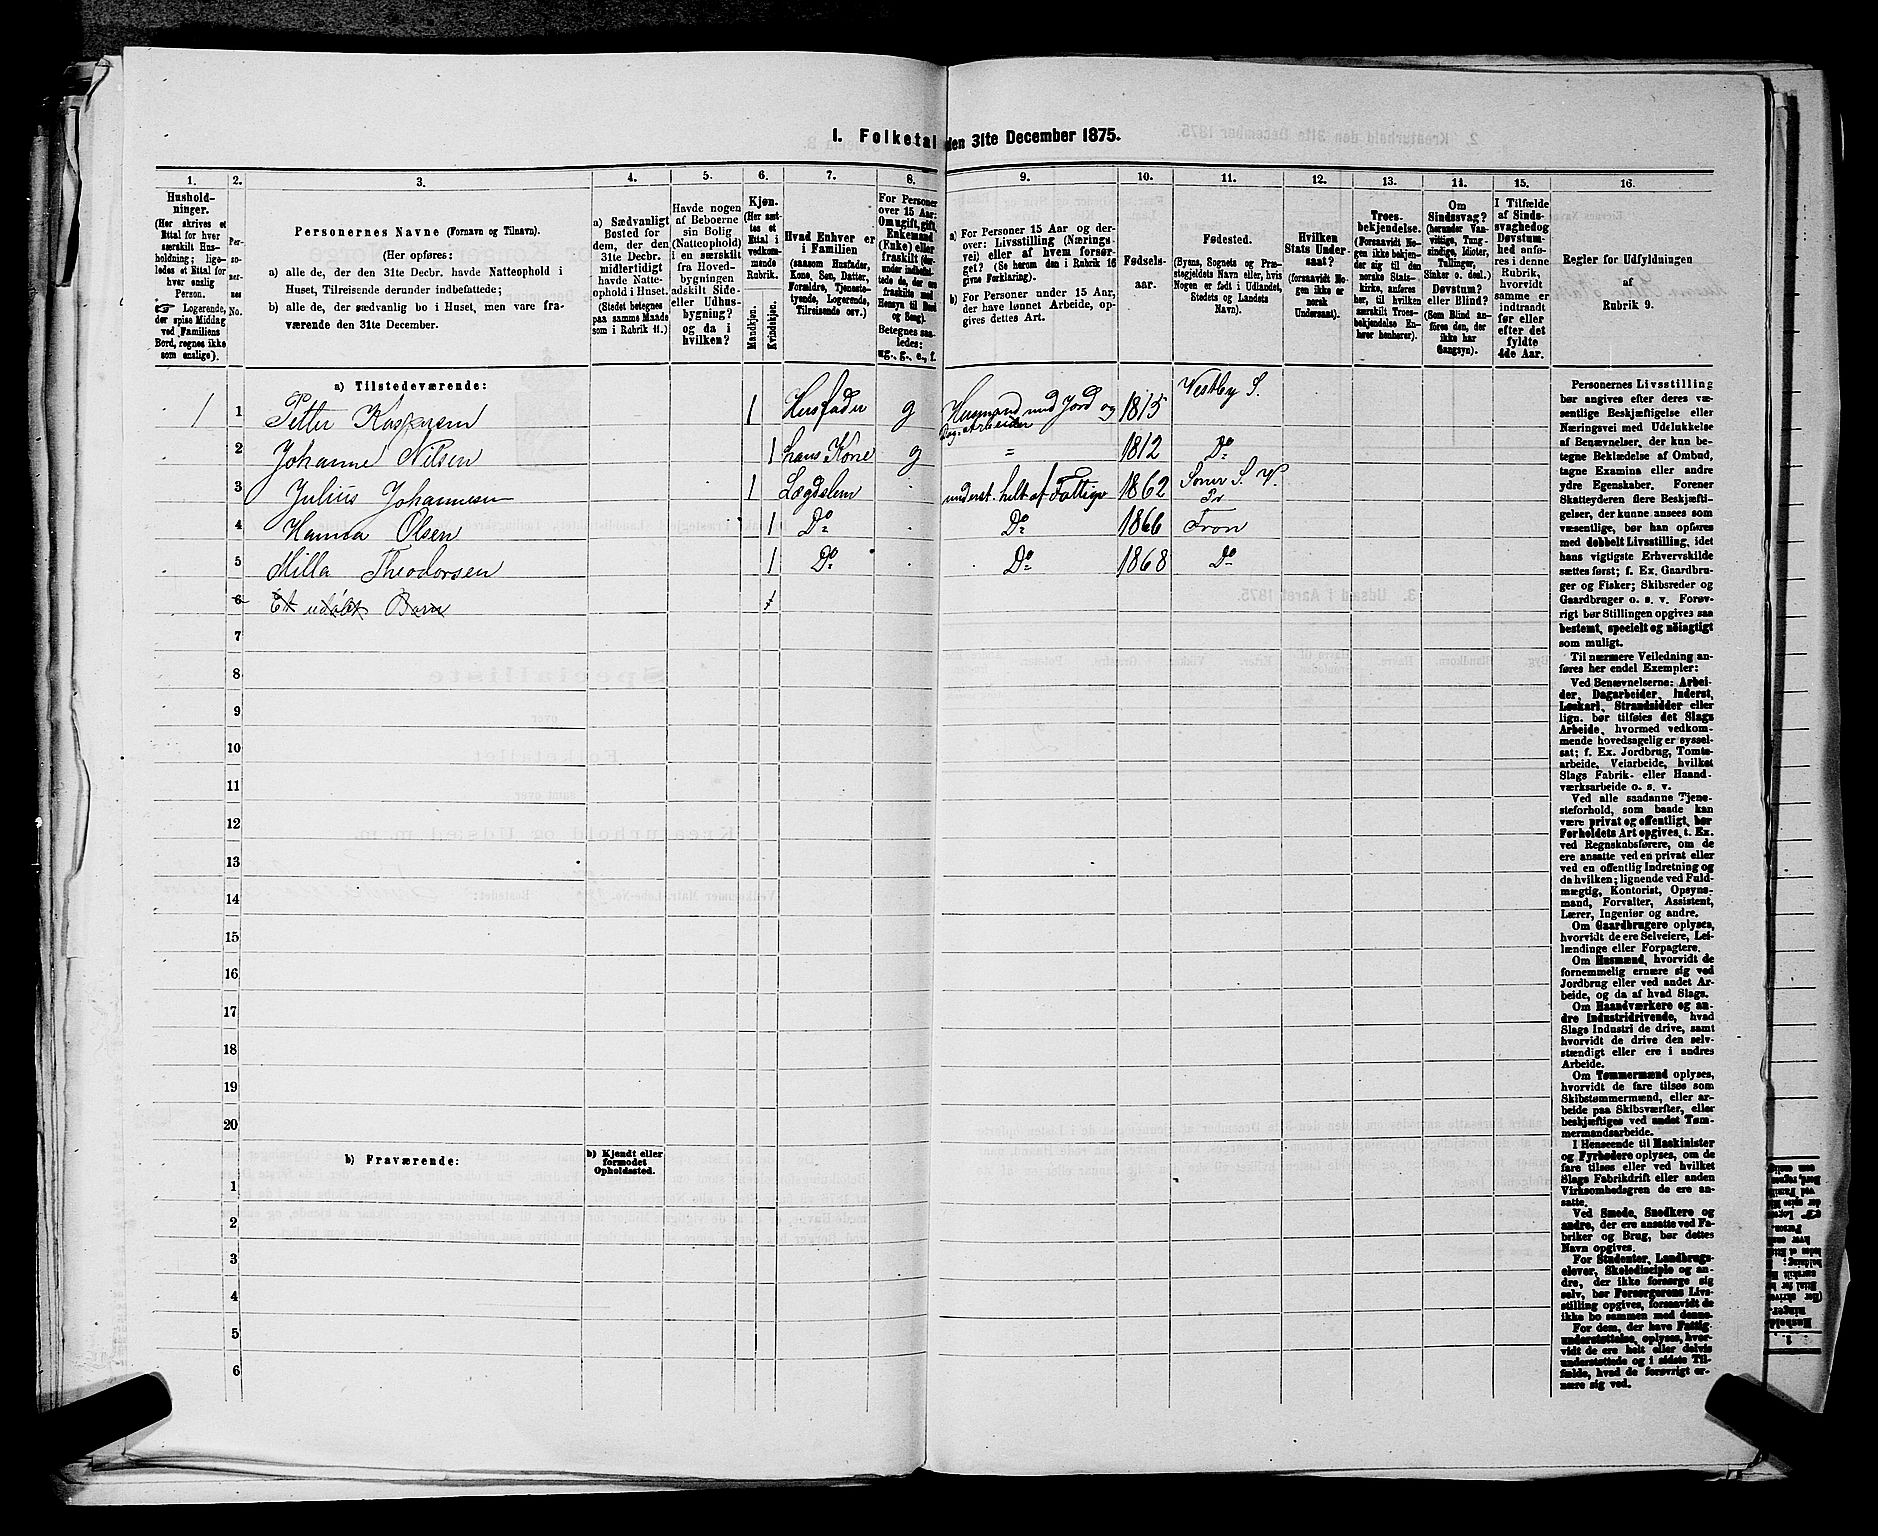 1. Folketal den 31te December 1875.
1. 2. 3. 4. 5. 6. 7. 8. 9. 10. 11. 12. 13. 14. 15. 16.
Hushold-
ninger.
(Her skrives et
Ettal for hver
særskilt Hus-
holdning; lige-
ledes et Ettal for
hver enslig
Person.
☞ Logerende,
der spise Middag
ved Familiens
Bord, regnes ikke
som enslige).
Per-
so-
ner-
nes
No.
Personernes Navne (Fornavn og Tilnavn).
(Her opføres:
a) alle de, der den 31te Decbr. havde Natteophold i
Huset, Tilreisende derunder indbefattede;
b) alle de, der sædvanlig bo i Huset, men vare fra-
værende den 31te December.
a) Sædvanligt
Bosted for
dem, der den
31te Decbr.
midlertidigt
havde Natte-
ophold i Huset.
(Stedet betegnes
paa samme Maade
som i Rubrik 11.)
Havde nogen
af Beboerne
sin Bolig
(Natteophold)
i en særskilt
fra Hoved-
bygningen
adskilt Side-
eller Udhus-
bygning?
og da i
hvilken?
Kjøn.
(Her sæt-
tes et
Ettal i
vedkom-
mende
Rubrik.
Mandkjøn.
Kvindekjøn.
Hvad Enhver er
i Familien
(saasom Husfader,
Kone, Søn, Datter,
Forældre, Tjeneste-
tyende, Logerende,
Tilreisende osv.)
For Personer
over 15 Aar:
Om ugift, gift,
Enkemand
(Enke) eller
fraskilt (der-
under indbefat-
tede de, der ere
fraskilte med
Hensyn til Bord
og Seng).
Betegnes saa-
ledes:
ug., g., e., f.
a) For Personer 15 Aar og der-
over: Livsstilling (Nærings-
vei) eller af hvem forsør-
get? (Se herom den i Rubrik 16
givne Forklaring).
b) For Personer under 15 Aar,
der have lønnet Arbeide, op-
gives dettes Art.
Fødsels-
aar.
Fødested.
(Byens, Sognets og Præ-
stegjeldets Navn eller, hvis
Nogen er født i Udlandet,
Stedets og Landets
Navn).
Hvilken
Stats Under-
saat?
(forsaavidt No-
gen ikke er
norsk
Undersaat).
Troes-
bekjendelse.
(Forsaavidt No-
gen ikke bekjen-
der sig til den
norske Stats-
kirke, anføres
her, til hvilken
særskilt Troes-
bekjendelse En-
hver henhører).
Om
Sindssvag?
(herunder Van-
vittige, Tung-
sindige, Idioter,
Tullinger,
Sinker o. desl.)
Døvstum?
eller Blind?
(Som Blind an-
føres den, der
ikke har
Gangsyn).
I Tilfælde
af Sinds-
svaghed og
Døvstum-
hed anfø-
res i denne
Rubrik,
hvorvidt
samme er
indtraadt
før eller
efter det
fyldte
4de Aar.
Regler for Udfyldningen
af
Rubrik 9.
a) Tilstedeværende:
1 1 Petter Kaspersen 1 Husfader g Husmand med Jord og Dag.Arbeider 1815 Vestby S.
2 Johanne Nilsen 1 hans Kone g = 1812 Do
3 Julius Johannesen 1 Lægdslem underst. helt af Fattigv 1862 Soner S. V. Pr
4 Hanna Olsen 1 Do Do 1866 Fron
5 Milla Theodorsen 1 Do Do 1868 Do
6 Et udøbt Barn 1
7
8
9
10
11
12
13
14
15
16
17
18
19
20
b) Fraværende:
b) Kjendt eller
formodet
Opholdssted.
1
2
3
4
5
6
Personernes Livsstilling
bør angives efter deres væ-
sentlige Beskjæftigelse eller
Næringsvei med Udelukkelse
af Benævnelser, der kun be-
tegne Beklædelse af Ombud,
tagne Examina eller andre
ydre Egenskaber. Forener
Skatteyderen flere Beskjæfti-
gelser, der kunne ansees som
væsentlige, bør han opføres
med dobbelt Livsstilling, idet
hans vigtigste Erhvervskilde
sættes først; f. Ex. Gaardbru-
ger og Fisker; Skibsreder og
Gaardbruger o. s. v. Forøv-
rigt bør Stillingen opgives saa
bestemt, specielt og nöiagtigt
som muligt.
Til nærmere Veiledning an-
føres her endel Exempler:
Ved Benævnelserne: Arbei-
der, Dagarbeider, Inderst,
Løskarl, Strandsidder eller
lign. bør tilføies det Slags
Arbeide, hvormed vedkom-
mende hovedsagelig er syssel-
sat; f. Ex. Jordbrug, Tomte-
arbeide, Veiarbeide, hvilket
Slags Fabrik- eller Haand-
værksarbeide o. s. v.
Ved alle saadanne Tjene-
steforhold, som baade kan
være privat og offentligt, bør
Forholdets Art opgives, t. Ex.
ved Regnskabsførere, om de
ere ansatte ved en privat eller
ved en offentlig Indretning og
da hvilken; lignende ved Fuld-
mægtig, Kontorist, Opsyns-
mand, Forvalter, Assistent,
Lærer, Ingeniør og andre.
Om Gaardbrugere oplyses,
hvorvidt de ere Selveiere, Lei-
lændinge eller Forpagtere.
Om Husmænd, hvorvidt de
fornemmelig ernære sig ved
Jordbrug eller ved andet Ar-
beide, og da af hvad Slags.
Om Haandværkere og an-
dre Industridrivende, hvad
Slags Industri de drive, samt
hvorvidt de drive den selv-
stændigt eller ere i andres
Arbeide.
Om Tømmermænd oplyses,
hvorvidt de fare tilsøs som
Skibstømmermænd, eller ar-
beide paa Skibsværfter, eller
beskjæftiges ved andet Tøm-
mermandsarbeide.
I Henseende til Maskinister
og Fyrbødere oplyses, om de
fare tilsøs eller ved hvilket
Slags Fabrikdrift eller anden
Virksomhedsgren de ere an-
satte.
Ved Smede, Snedkere og
andre, der ere ansatte ved Fa-
briker og Brug, bør dettes
Navn opgives.
For Studenter, Landbrugs-
elever, Skoledisciple og an-
dre, der ikke forsørge sig
selv, bør Forsørgerens Livs-
stilling opgives, forsaavidt de
ikke bo sammen med denne.
For dem, der have Fattig-
understøttelse, oplyses, hvor-
vidt de ere helt eller delvis
understøttede og i sidste Til-
fælde, hvad de forøvrigt er-
nære sig ved.